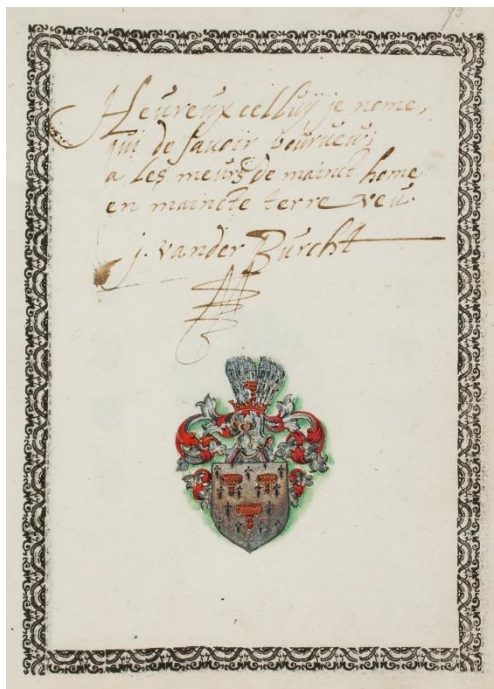 Heureux celluÿ je nome,
qui de savoir pourveu,
a les meurs de mainct home
en maincte terre veu.
j. vander Burcht